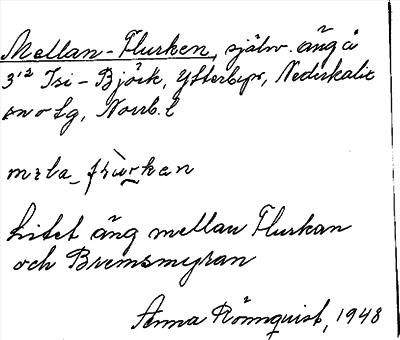 Mellan-Flurken, själv. äng å
3¹² Isi-Björk, Ytterbyn, Nederkalix
sn o tg, Norrb. l
Litet äng mellan Flurkan
och Bremsmyran
Anna Rönnquist, 1948